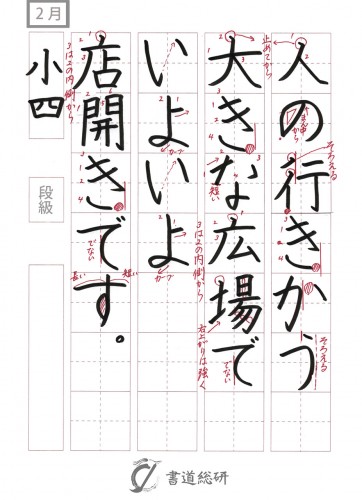 2月
人の行きかう
大きな広場で
いよいよ
店開きです。
小四
段級
止めてから
まん中から
そろえる
そろえる
短い
3は2の内側から
右上がりは強く
でない
カーブ
カーブ
3は2の内側から
でない
長い
短い
書道総研